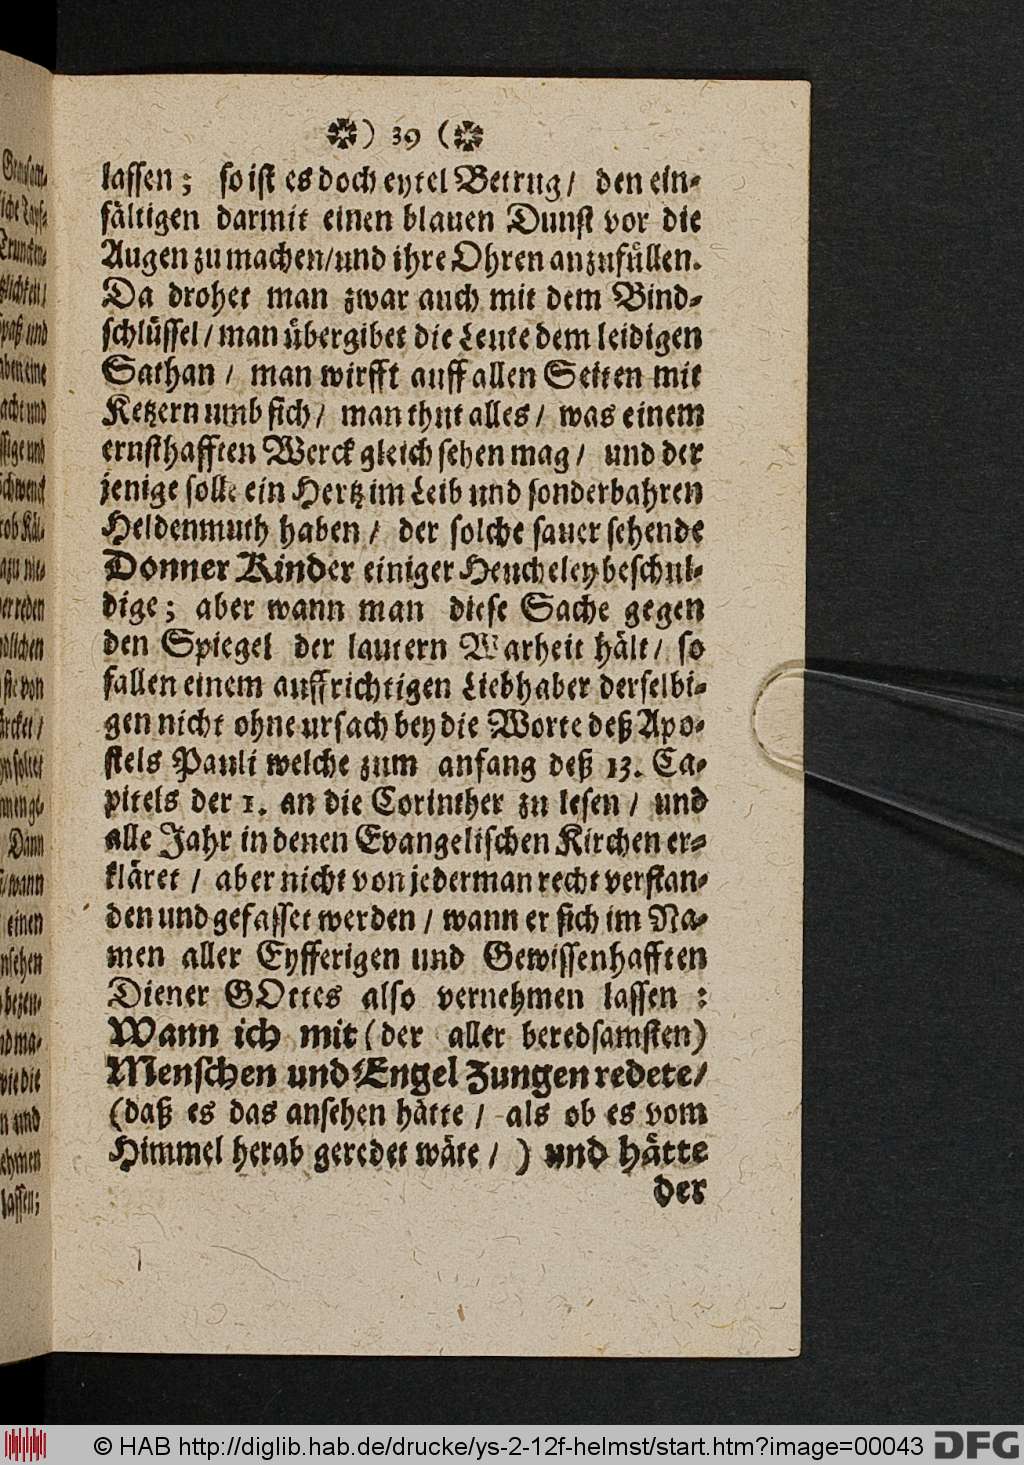 ✼) 39 (✼
lassen; so ist es doch eytel Betrug/ den ein-
fältigen darmit einen blauen Dunst vor die
Augen zu machen/und ihre Ohren anzufüllen.
Da drohet man zwar auch mit dem Bind-
schlüssel/man übergibet die Leute dem leidigen
Sathan/ man wirfft auff allen Seiten mit
Ketzern umb sich/ man thut alles/ was einem
ernsthafften Werck gleich sehen mag/ und der
jenige solle ein Hertz im Leib und sonderbahren
Heldenmuth haben/ der solche sauer sehende
Donner Kinder einiger Heucheley beschul-
dige; aber wann man diese Sache gegen
den Spiegel der lautern Warheit hält/ so
fallen einem auffrichtigen Liebhaber derselbi-
gen nicht ohne ursach bey die Worte deß Apo-
stels Pauli welche zum anfang deß 13. Ca-
pitels der 1. an die Corinther zu lesen/ und
alle Jahr in denen Evangelischen Kirchen er-
kläret/ aber nicht von jederman recht verstan-
den und gefasset werden/ wann er sich im Na-
men aller Eyfferigen und Gewissenhafften
Diener GOttes also vernehmen lassen:
Wann ich mit (der aller beredsamsten)
Menschen und Engel Zungen redete/
(daß es das ansehen hätte/ als ob es vom
Himmel herab geredet wäre/) und hätte
der
lichkeit/
spaß und
aben eine
acht und
ssige und
er reden
dlichen
sie von
ärcket/
Dann
/wann
einen
nsehen
bezeu-
nd ma-
wie die
n und
ehmen
lassen;
© HAB http://diglib.hab.de/drucke/ys-2-12f-helmst/start.htm?image=00043 DFG